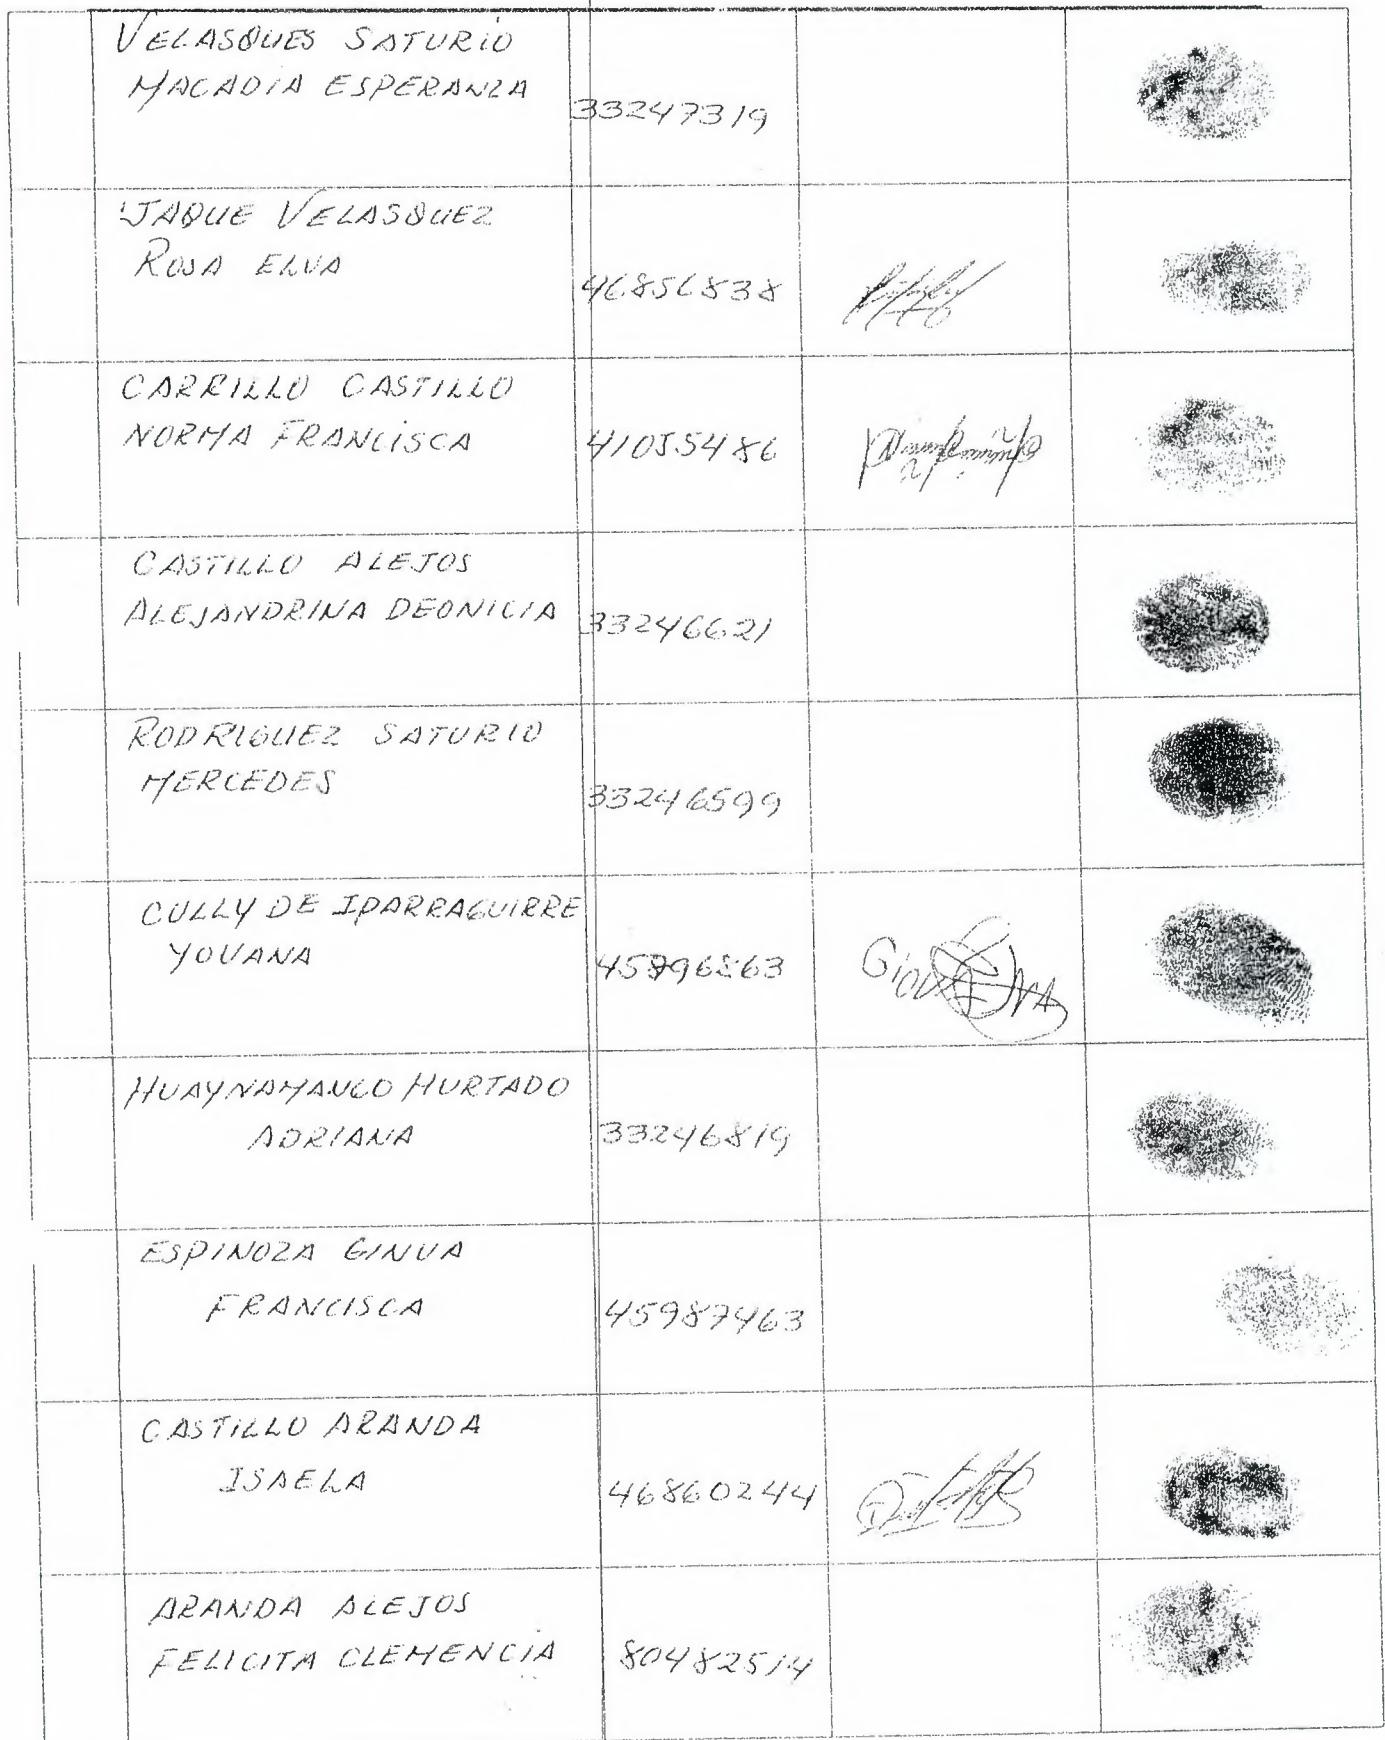 VELASQUES SATURIO
MACADIA ESPERANZA
33247319
JAQUE VELASQUEZ
ROSA ELVA
46856838
CARRILLO CASTILLO
NORMA FRANCISCA
41055486
CASTILLO ALEJOS
ALEJANDRINA DEONICIA
33246621
RODRIGUEZ SATURIO
MERCEDES
33246599
CULLY DE IPARRAGUIRRE
YOVANA
45896863
HUAYNAMANCO HURTADO
ADRIANA
33246819
ESPINOZA GINUA
FRANCISCA
45987463
CASTILLO ARANDA
ISAELA
46860244
ARANDA ALEJOS
FELICITA CLEMENCIA
80482514